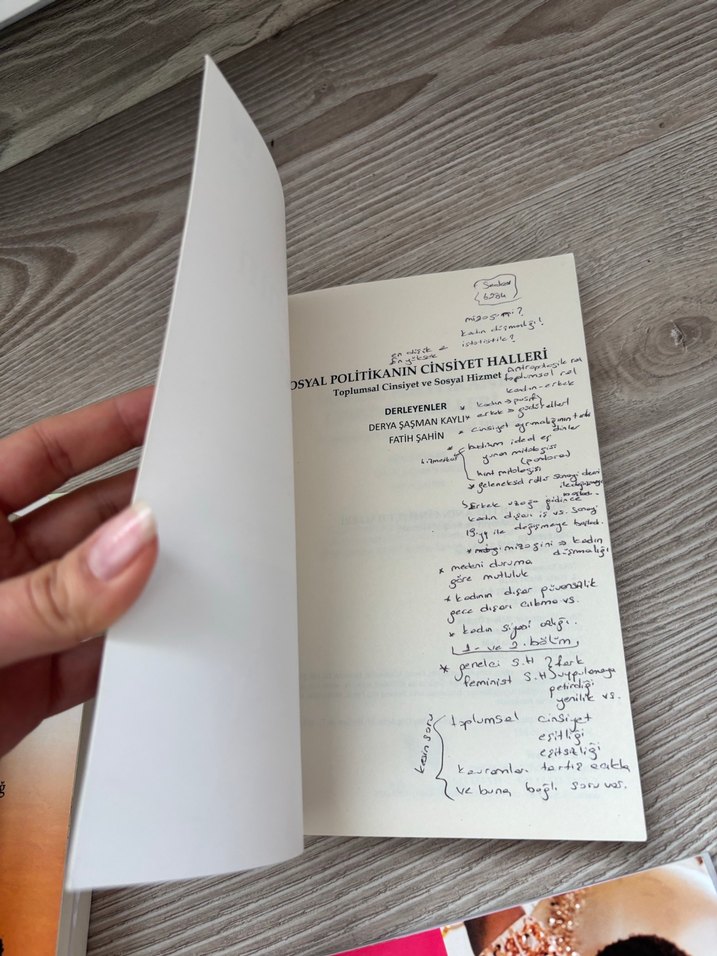 mizojini?
kadın düşmanlığı!
en düşük = istatistik?
en yüksek
SOSYAL POLİTİKANIN CİNSİYET HALLERİ
Toplumsal Cinsiyet ve Sosyal Hizmet
toplumsal rol
kadın-erkek
DERLEYENLER
DERYA ŞAŞMAN KAYLI
FATİH ŞAHİN
* kadın => pasif
* erkek =>
* cinsiyet ayrımcılığının
dinler
* kadının ideal eş
yunan mitolojisi
(pandora)
hint mitolojisi
* geleneksel roller sanayi devri
ile değişmeye
Erkek uzağa gidince
kadın dışarı iş vs. sanayi
19.yy ile değişmeye başladı.
* mizojini => kadın
düşmanlığı
* medeni duruma
göre mutluluk
* kadının dışar güvensizlik
gece dışarı çıkma vs.
* kadın siyasi azlığı.
1. ve 2. bölüm
* genelci S.H } fark
feminist S.H } uygulamaya
getirdiği
yenilik vs.
kesin soru
toplumsal cinsiyet
eşitliği
eşitsizliği
kavramları tartış açıkla
ve buna bağlı soru var.